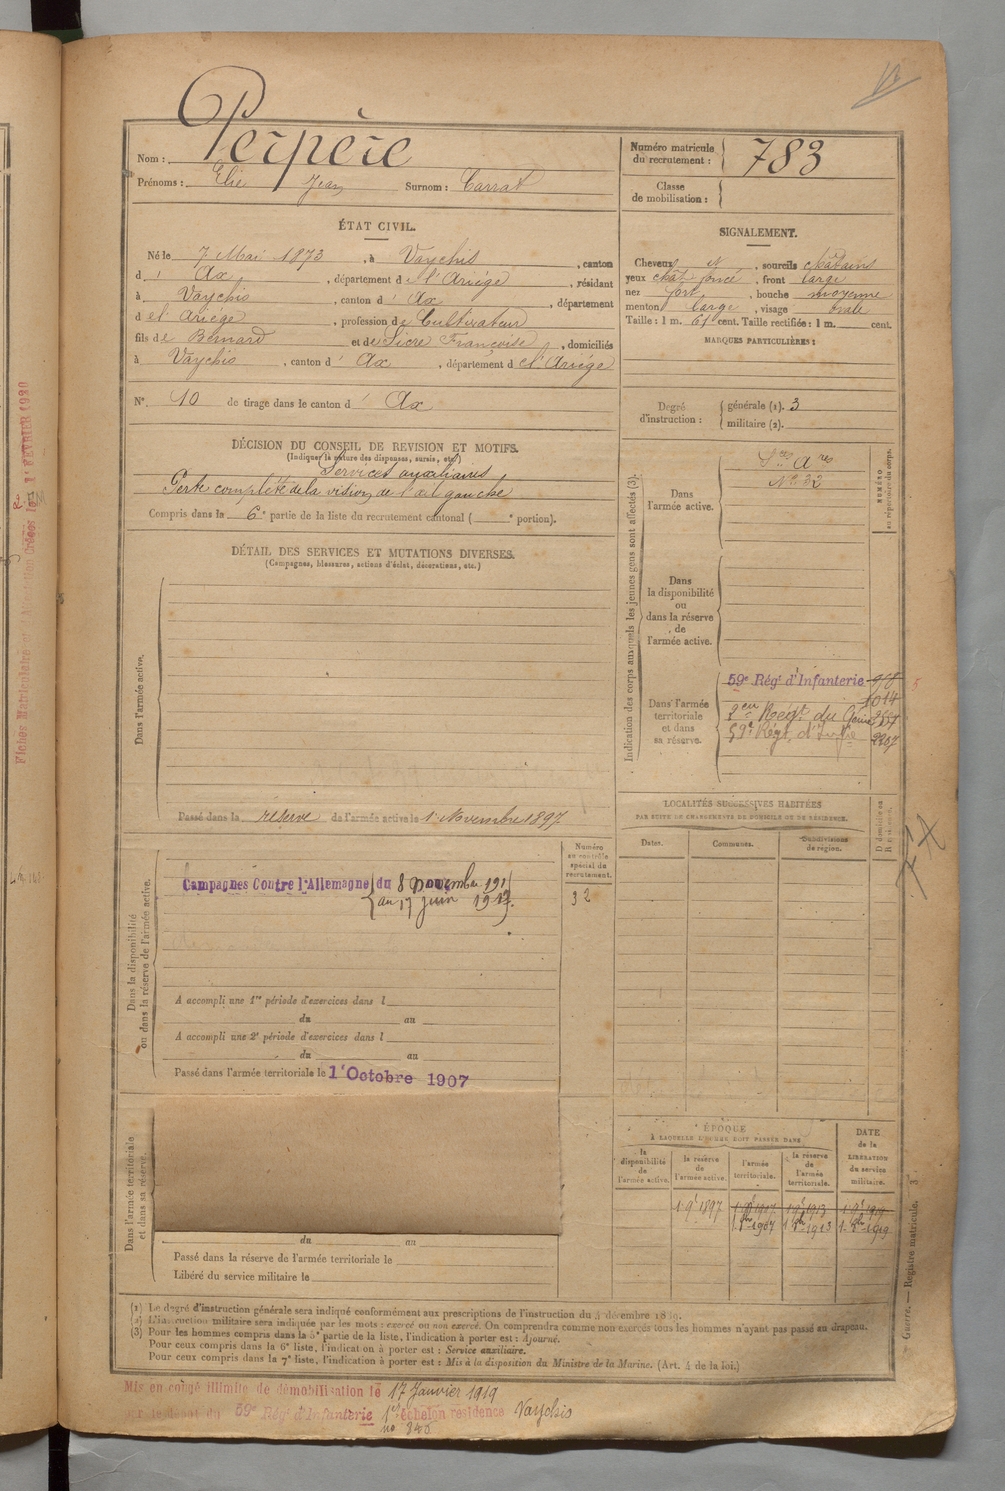 Perpère
Nom :
Prénoms : Elie Jean Surnom : Carrat
Numéro matricule
du recrutement : 783
Classe
de mobilisation :
ÉTAT CIVIL.
Né le 7 Mai 1873, à Vaychis, canton
d' Ax, département de l'Ariège, résidant
à Vaychis, canton d' Ax, département
de l' Ariège, profession de Cultivateur
fils de Bernard et de Sicre Françoise, domiciliés
à Vaychis, canton d' Ax, département de l'Ariège
N° 10 de tirage dans le canton d' Ax
SIGNALEMENT.
Cheveux N, sourcils châtains
yeux chât foncé, front large
nez fort, bouche moyenne
menton large, visage ovale
Taille : 1 m. 61 cent. Taille rectifiée : 1 m. cent.
MARQUES PARTICULIÈRES :
Degré
d'instruction :
générale (1). 3
militaire (2).
DÉCISION DU CONSEIL DE REVISION ET MOTIFS.
(Indiquer la nature des dispenses, sursis, etc.)
Services auxiliaires
Perte complète de la vision de l'œil gauche
Compris dans la 6e partie de la liste du recrutement cantonal ( e portion).
DÉTAIL DES SERVICES ET MUTATIONS DIVERSES.
(Campagnes, blessures, actions d'éclat, décorations, etc.)
Dans l'armée active.
Passé dans la réserve de l'armée active le 1er Novembre 1897
Indication des corps auxquels les jeunes gens sont affectés (3).
NUMÉRO
au répertoire du corps.
Dans
l'armée active.
Sces Ares
N° 32
Dans
la disponibilité
ou
dans la réserve
de
l'armée active.
Dans l'armée
territoriale
et dans
sa réserve.
59e Régt d'Infanterie
2eme Régt du Génie
59e Régt d'Infie
LOCALITÉS SUCCESSIVES HABITÉES
PAR SUITE DE CHANGEMENTS DE DOMICILE OU DE RÉSIDENCE.
Dates.
Communes.
Subdivisions
de région.
Dans la disponibilité
ou dans la réserve de l'armée active.
Numéro
au contrôle
spécial du
recrutement.
32
Campagnes Contre l'Allemagne du 8 Novembre
au 17 Juin
A accompli une 1re période d'exercices dans l
du au
A accompli une 2e période d'exercices dans l
du au
Passé dans l'armée territoriale le 1er Octobre 1907
Dans l'armée territoriale
et dans sa réserve.
du au
Passé dans la réserve de l'armée territoriale le
Libéré du service militaire le
ÉPOQUE
A LAQUELLE L'HOMME DOIT PASSER DANS
la
disponibilité
de
l'armée active.
la réserve
de
l'armée active.
l'armée
territoriale.
la réserve
de
l'armée
territoriale.
DATE
de la
LIBÉRATION
du service
militaire.
(1) Le degré d'instruction générale sera indiqué conformément aux prescriptions de l'instruction du 4 décembre 1889.
(2) L'instruction militaire sera indiquée par les mots : exercé ou non exercé. On comprendra comme non exercés tous les hommes n'ayant pas passé au drapeau.
(3) Pour les hommes compris dans la 5e partie de la liste, l'indication à porter est : Ajourné.
Pour ceux compris dans la 6e liste, l'indication à porter est : Service auxiliaire.
Pour ceux compris dans la 7e liste, l'indication à porter est : Mis à la disposition du Ministre de la Marine. (Art. 4 de la loi.)
Guerre. — Registre matricule. 3.
Mis en congé illimité de démobilisation le 17 Janvier 1919
59e Régt d'Infanterie 1er échelon résidence Vaychis